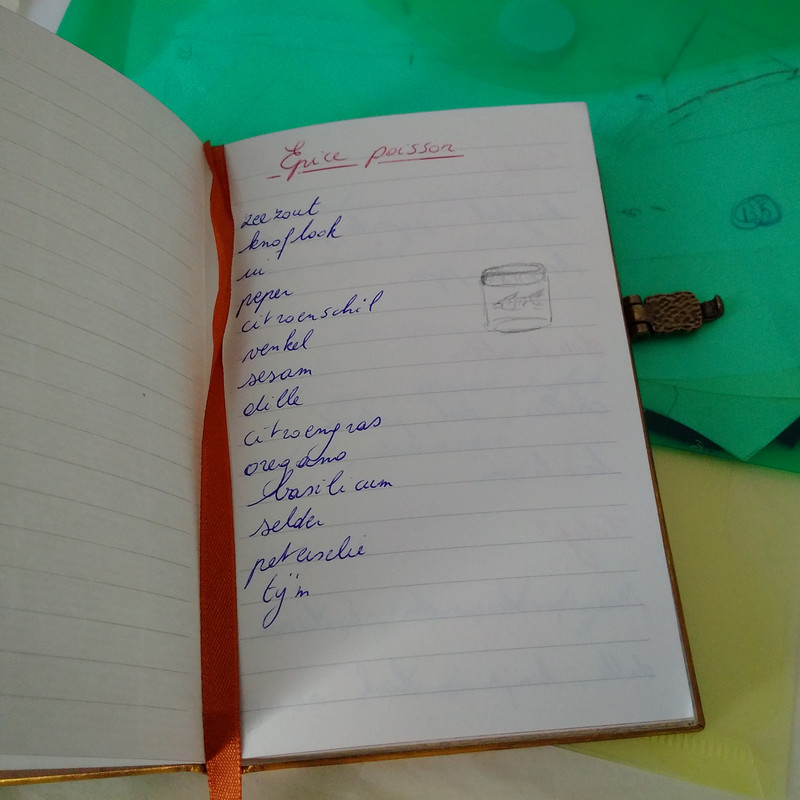 Epice poisson
zeezout
knoflook
ui
peper
citroenschil
venkel
sesam
dille
citroengras
oregano
basilicum
selder
peterselie
tijm